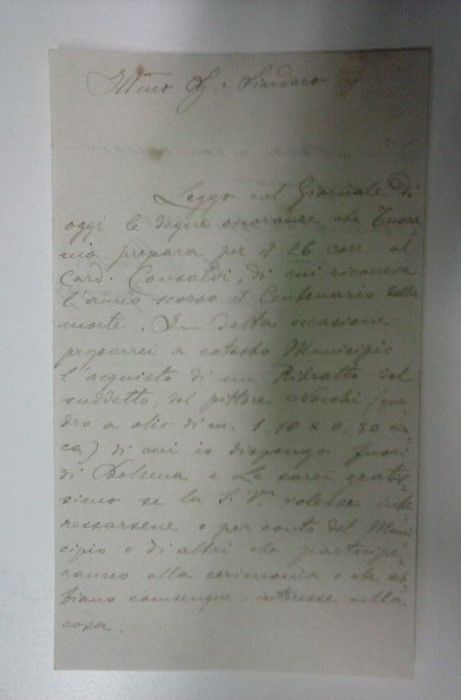 Illmo Sg. Sindaco
Leggo sul Giornale di
oggi le degne onoranze che Tusca
nia prepara per il 26 corr. al
Card. Consalvi, di cui ricorreva
l'anno scorso il Centenario della
morte. In detta occasione
proporrei a cotesto Municipio
l'acquisto di un Ritratto del
suddetto, del pittore (qua
dro a olio di m. 1.10 x 0,80 cir
ca) di cui io dispongo fuori
di e Le sarei gratis
simo se la S. V. volesse inte
ressarsene o per conto del Muni
cipio o di altri che partecipe
ranno alla cerimonia e che ab
biano comunque interesse nella
cosa.